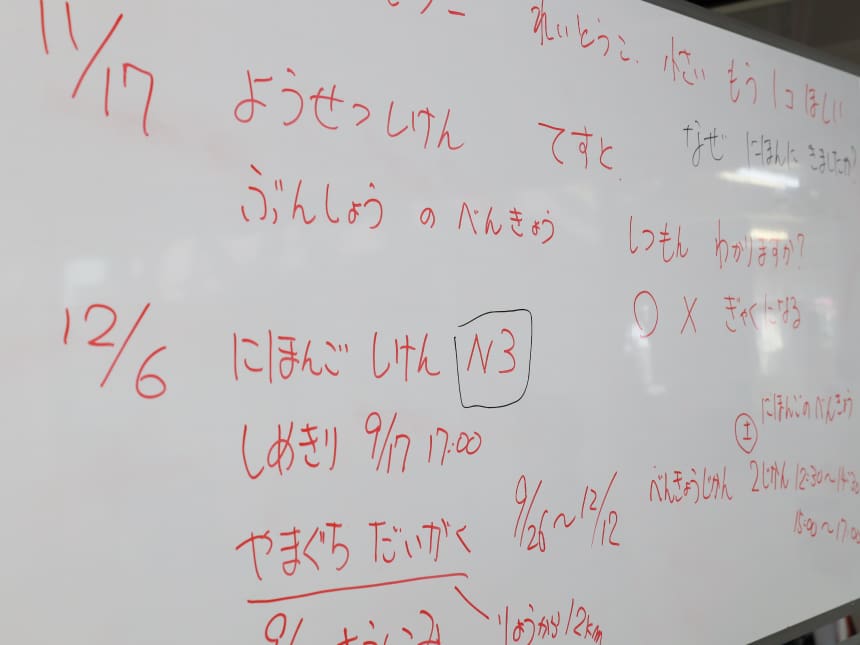 れいとうこ. 小さい もう 1コ ほしい
11/17 ようせつしけん てすと.
なぜ にほんに きましたか?
ぶんしょう の べんきょう
しつもん わかりますか?
○ X ぎゃくになる
12/6 にほんご しけん N3
しめきり 9/17 17:00
にほんごのべんきょう
土 べんきょうじかん 2じかん 12:30~14:30
15:00~17:00
やまぐち だいがく 9/26~12/12
りょうから12km